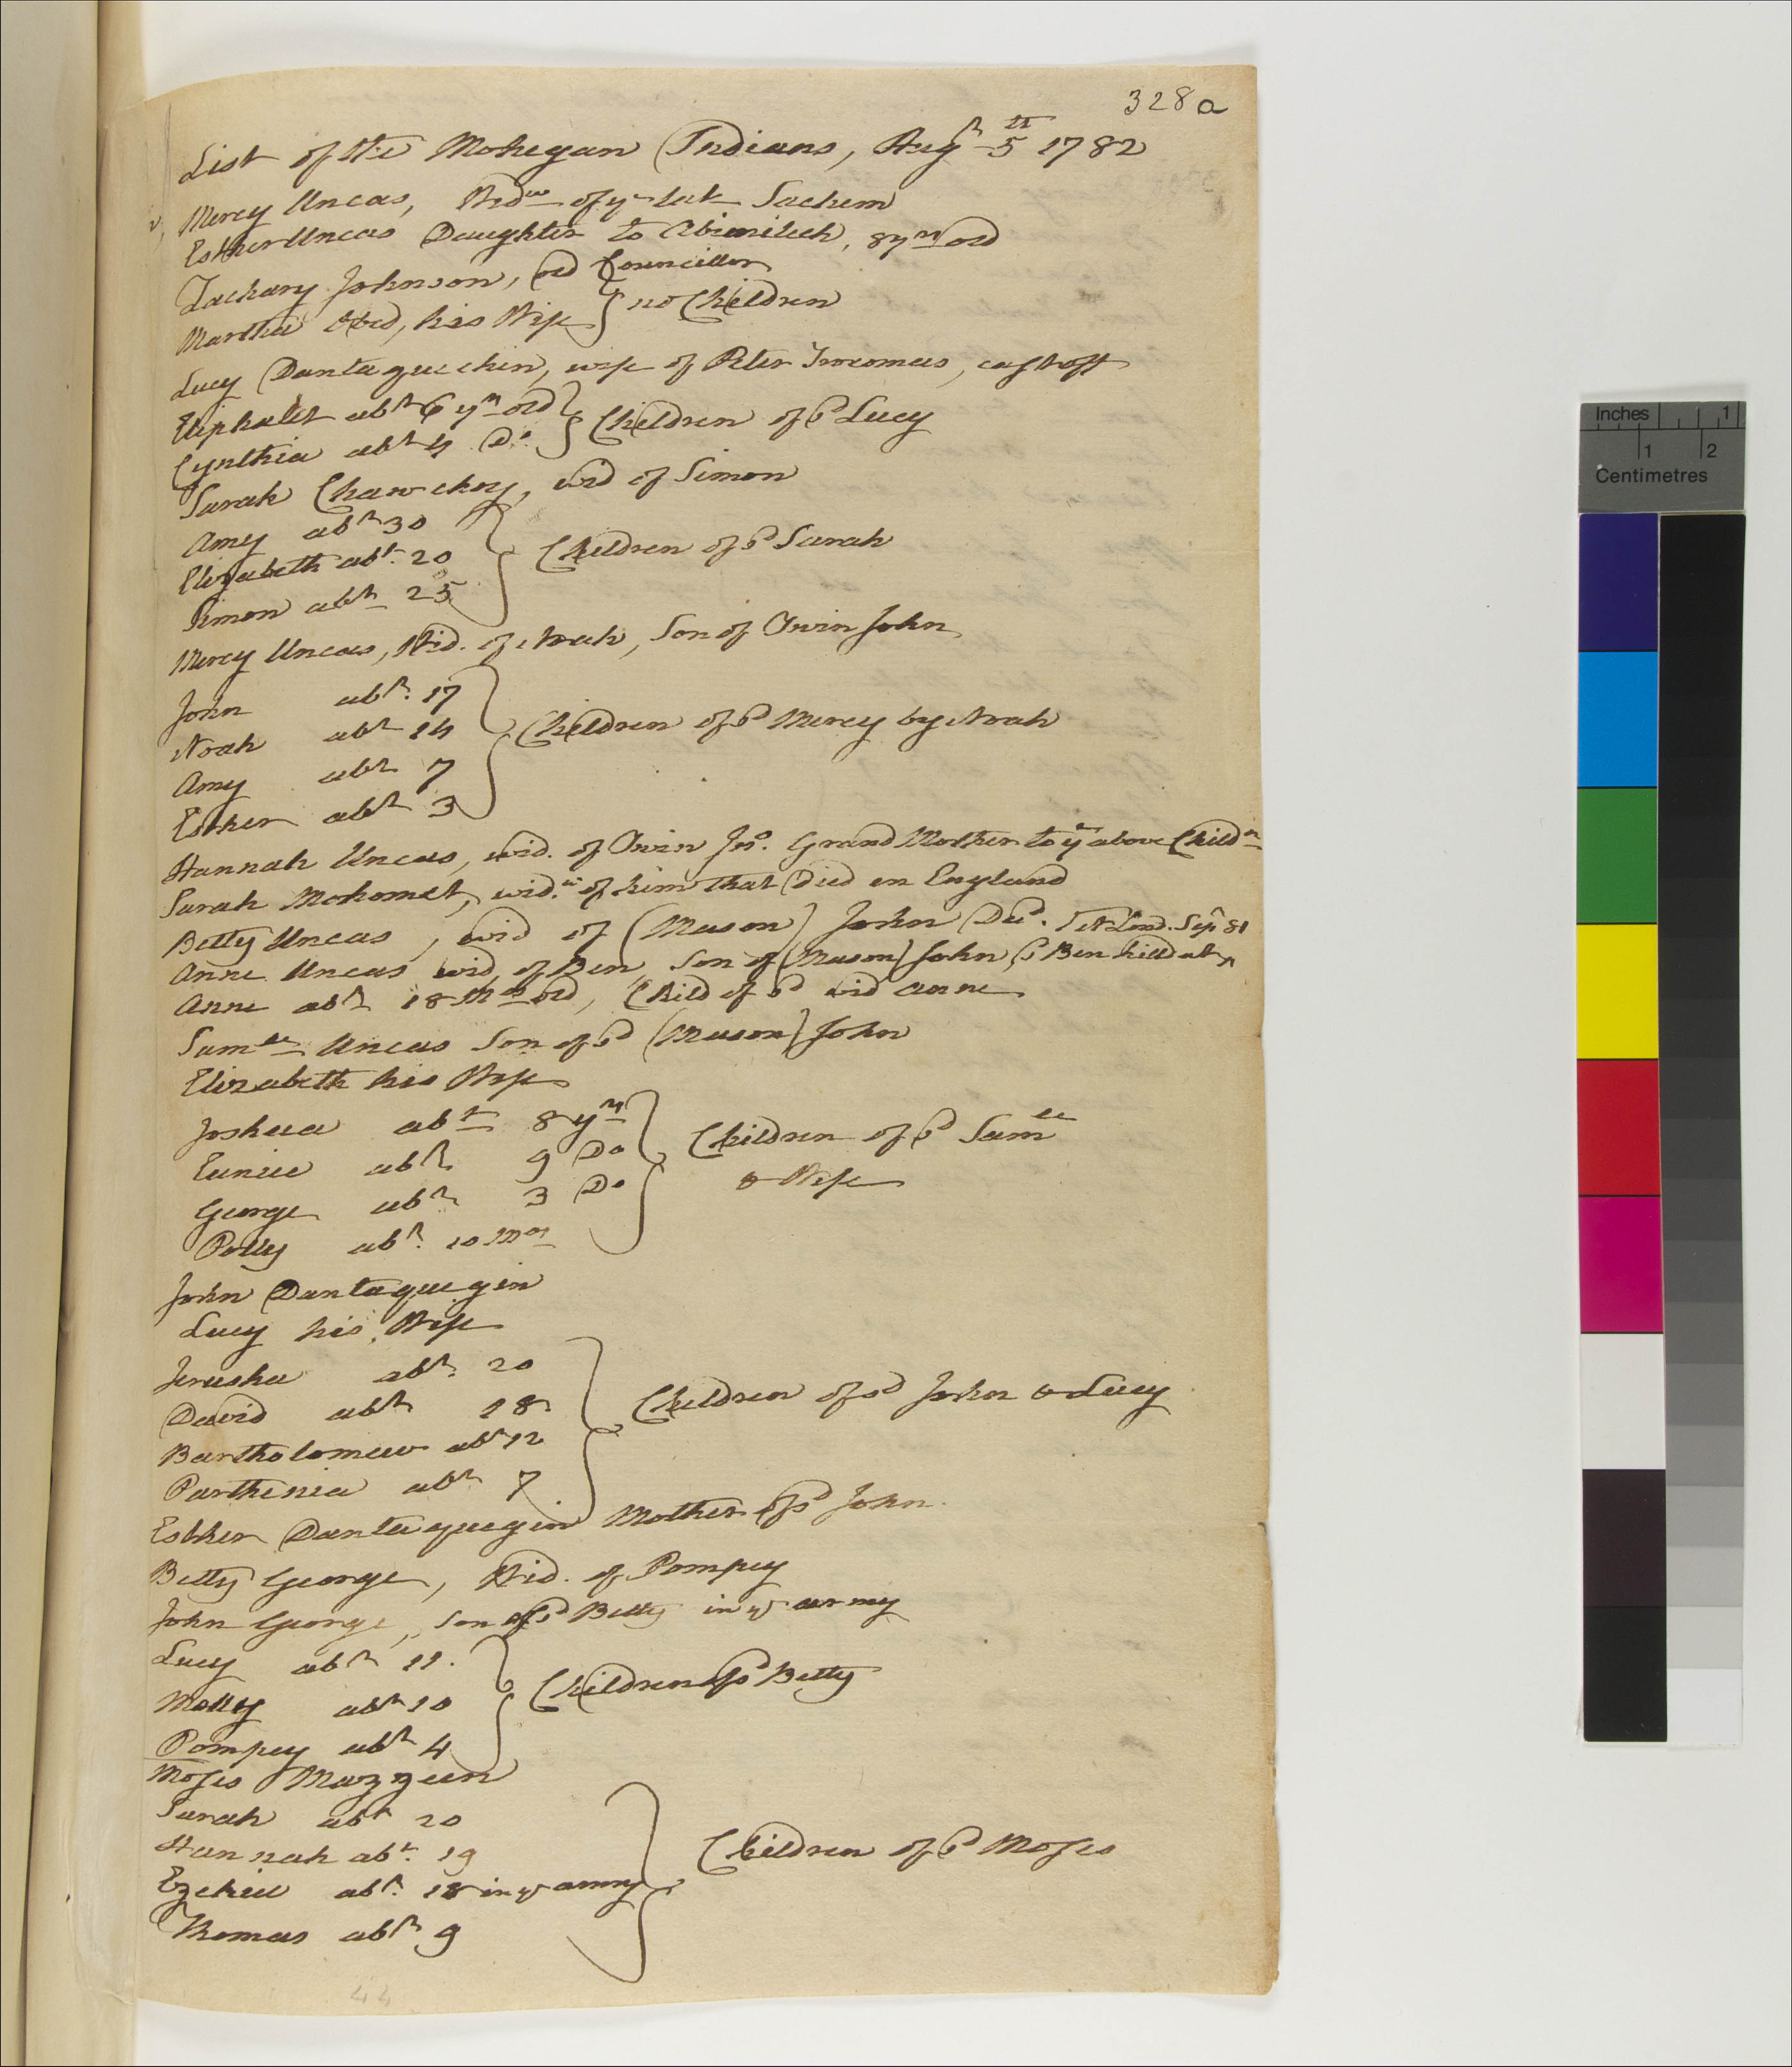 328a
List of the Mohegan Indians, Augt 5th 1782
Mercy Uncas, Widw of ye late Sachem
Esther Uncas Daughter to Abimilech, 8 yrs old
Zachary Johnson, old Councillor
Martha Obed, his Wife } no Children
Lucy Dantaquechin, wife of Peter, cast off
Eliphalet abt 6 yrs old
Cynthia abt 4 Do. } Children of sd Lucy
Sarah Chawchoy, wid of Simon
Amy abt 30
Elizabeth abt. 20 } Children of sd Sarah
Simon abt 25
Mercy Uncas, Wid. of Noah, Son of Owin John
John abt. 17
Noah abt 14 } Children of sd Mercy by Noah
Amy abt 7
Esther abt 3
Hannah Uncas, wid. of Owin Jno. Grand Mother to ye above Childn
Sarah Mohomet, wid. of him that Died in England
Betty Uncas, wid of (Mason) John Decd. N Lond. Sepr 81
Anne Uncas wid of Ben Son of (Mason) John, sd Ben killd at ^
Anne abt 18 Mos old, Child of sd wid Anne
Samll Uncas Son of sd (Mason) John
Elizabeth his Wife
Joshua abt 8 yrs
Eunice abt 9 Do } Children of sd Samll
George abt 3 Do & Wife
Polly abt. 10 Mos
John Dantaquegin
Lucy his Wife
Jerusha abt. 20
David abt 18 } Children of sd John & Lucy
Bartholomew abt 12
Parthenia abt 7
Esther Dantaquegin Mother of sd John.
Betty George, Wid. of Pompey
John George, Son of sd Betty in ye army
Lucy abt 11.
Molly abt 10 } Children of sd Betty
Pompey abt 4
Moses Mazzeen
Sarah abt 20
Hannah abt. 19 } Children of sd Moses
Ezekiel abt. 18 in ye army
Thomas abt 9
44
Inches 1
1 2
Centimetres